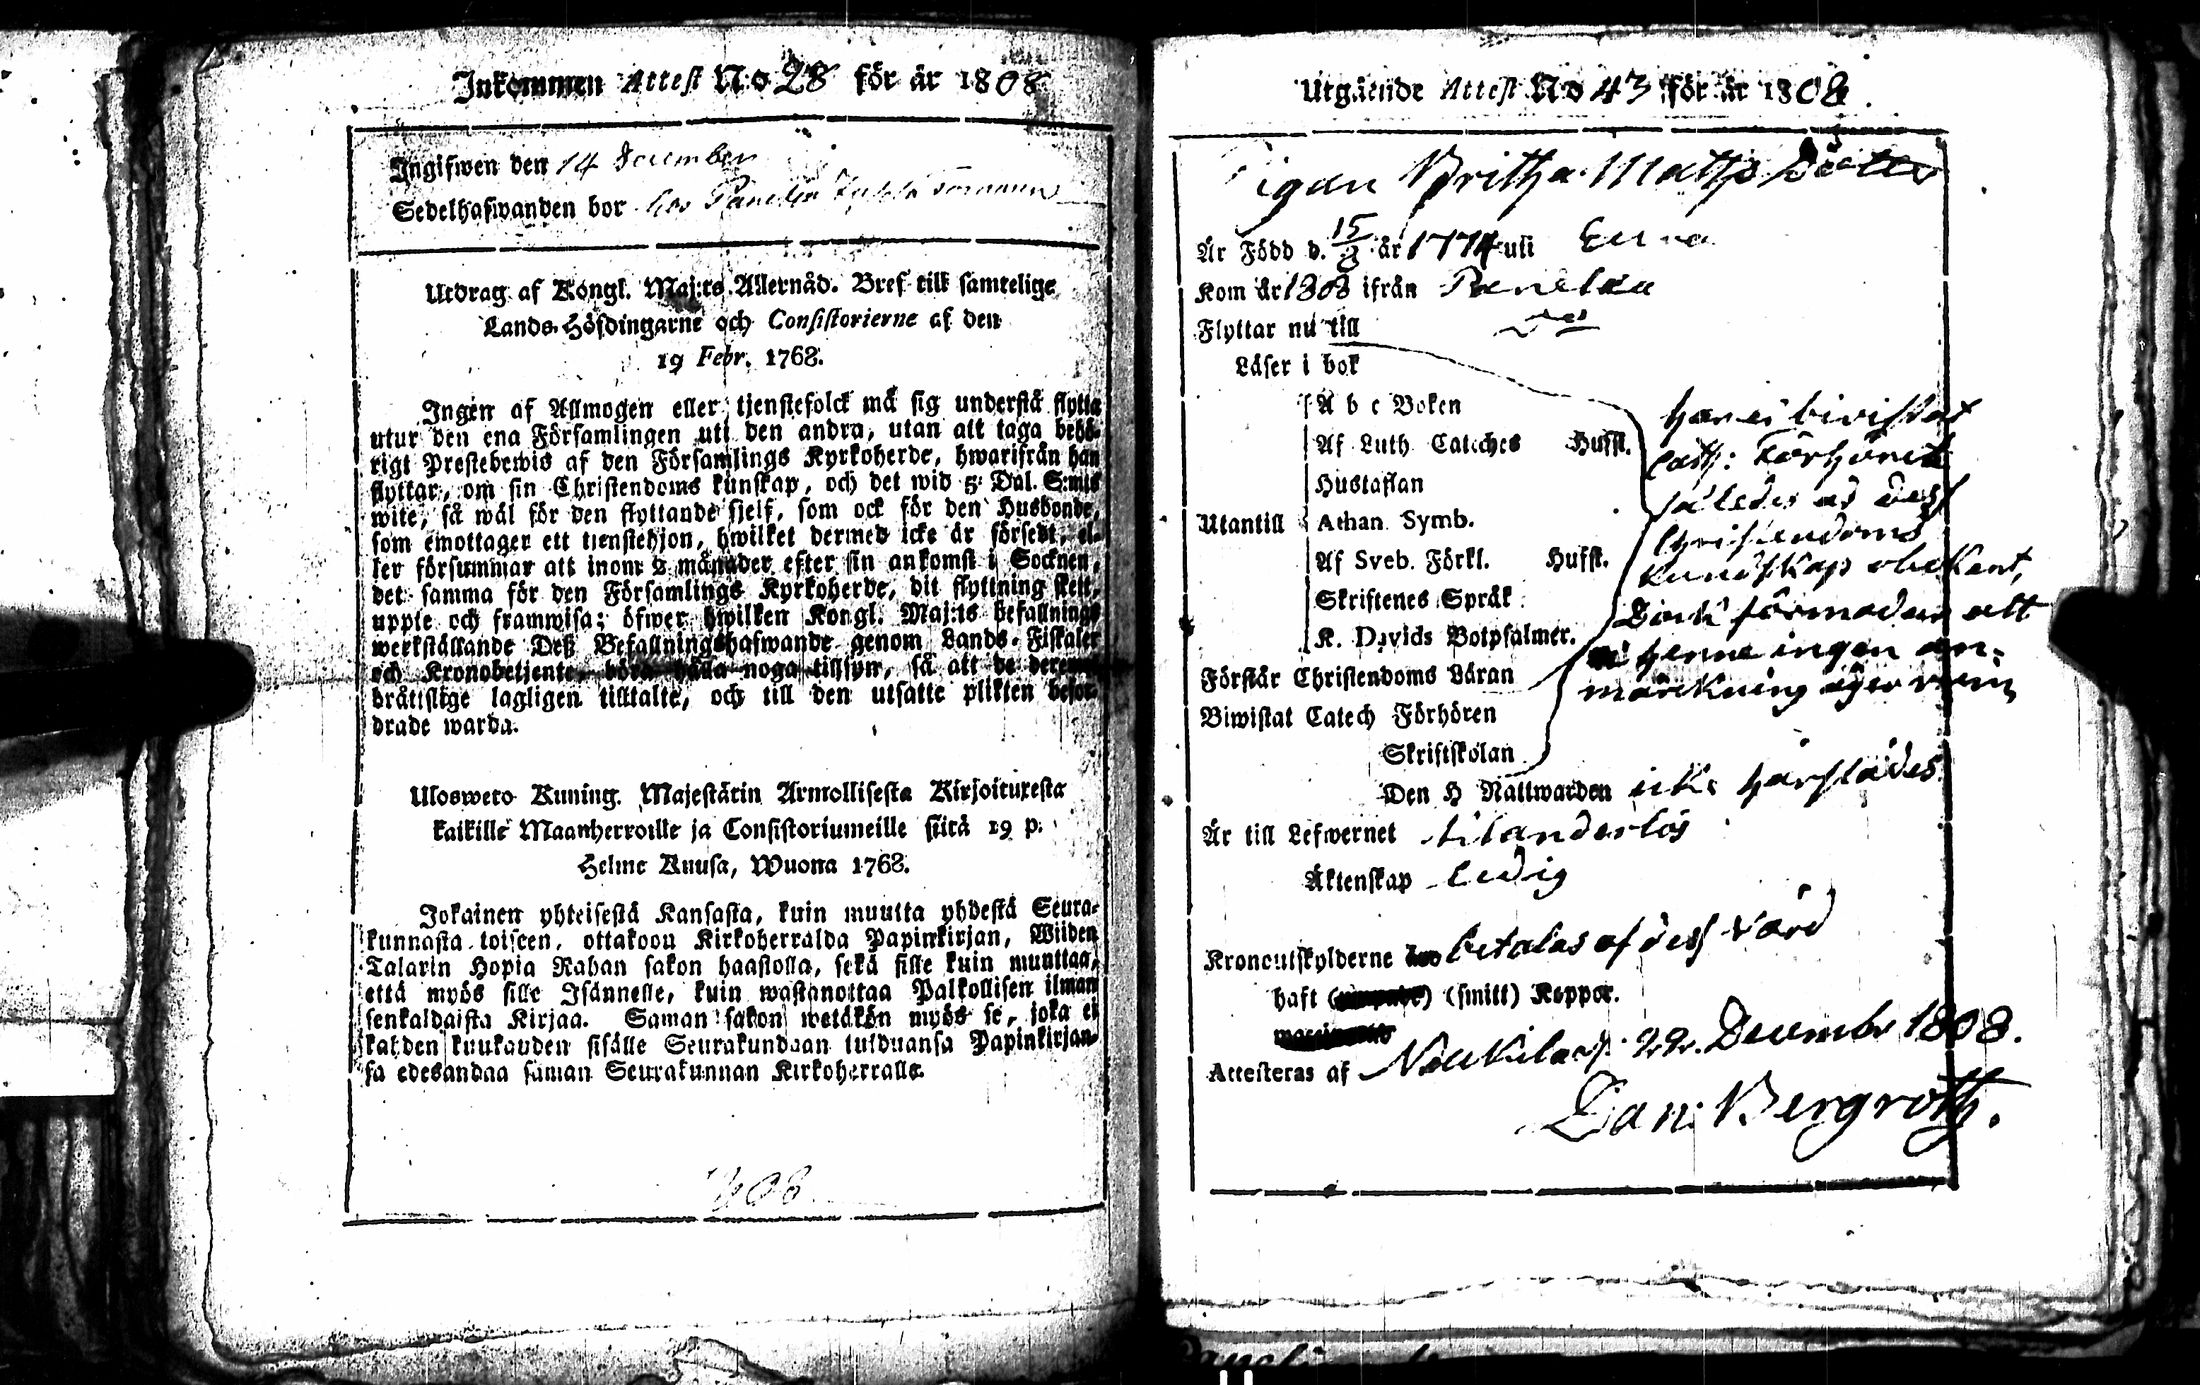 Inkommen Attest No 28 för år 1808
Ingifwen den 14 December
Sedelhafwanden bor hos
Utdrag af Kongl. Maj:ts Allernåd. Bref till samtelige
Lands-Höfdingarne och Consistorierne af den
19 Febr. 1768.
Ingen af Allmogen eller tjenstefolck må sig understå flytta
utur den ena Församlingen uti den andra, utan att taga behö-
rigt Prestebewis af den Församlings Kyrkoherde, hwarifrån han
flyttar, om sin Christendoms kunskap, och det wid 5: Dal. S:mts
wite, så wäl för den flyttande sjelf, som ock för den Husbonde,
som emottager ett tjenstehjon, hwilket dermed icke är försedt, el-
ler försummar att inom 2 månader efter sin ankomst i Socknen,
det samma för den Församlings Kyrkoherde, dit flyttning skett,
uppte och framwisa; öfwer hwilken Kongl. Maj:ts befallnings
werkställande Deß Befallningshafwande genom Lands-Fiskaler
och Kronobetjente, böra hålla noga tillsyn, så att de deremot
bråttslige lagligen tilltalte, och till den utsatte plikten befor-
drade warda.
Ulosweto Kuning. Majestätin Armollisesta Kirjoituxesta
kaikille Maanherroille ja Consistoriumeille siitä 19 p.
Helme Kuusa, Wuona 1768.
Jokainen yhteisestä Kansasta, kuin muutta yhdestä Seura-
kunnasta toiseen, ottakoon Kirkoherralda Papinkirjan, Wiiden
Talarin Hopia Rahan sakon haastolla, sekä sille kuin muuttaa,
että myös sille Isännelle, kuin wastanottaa Palkollisen ilman
senkaldaista Kirjaa. Saman sakon wetäkön myös se, joka ei
kahden kuukauden sisälle Seurakundaan tulduansa Papinkirjan-
sa edesandaa saman Seurakunnan Kirkoherralle.
1808
Utgående Attest No 43 för år 1808.
Pigan Britha Maths Dotter
Är Född d. 15/8 år 1774 uti Eura
Kom år 1808 ifrån Panelia
Flyttar nu till
Läser i bok
A b c Boken
Af Luth Cateches Husfl.
Hustaflan
Utantill Athan Symb.
Af Sveb. Förkl. Husfl.
Skriftenes Språk
K. Davids Botpsalmer.
Förstår Christendoms Läran
Biwistat Catech Förhören
Skriftskolan
har ei biwistat
Cath: Förhöret
således är dess
Christendoms
kundskap obekant,
Dock förmodas att
henne ingen an-
märckning äger rum
Den H Nattwarden icke härstädes
Är till Lefwernet
Äktenskap ledig
Kronoutskylderne betalas af dess Värd
haft (smitt) Koppor.
Attesteras af 22. December 1808.
Dan: Bergroth.